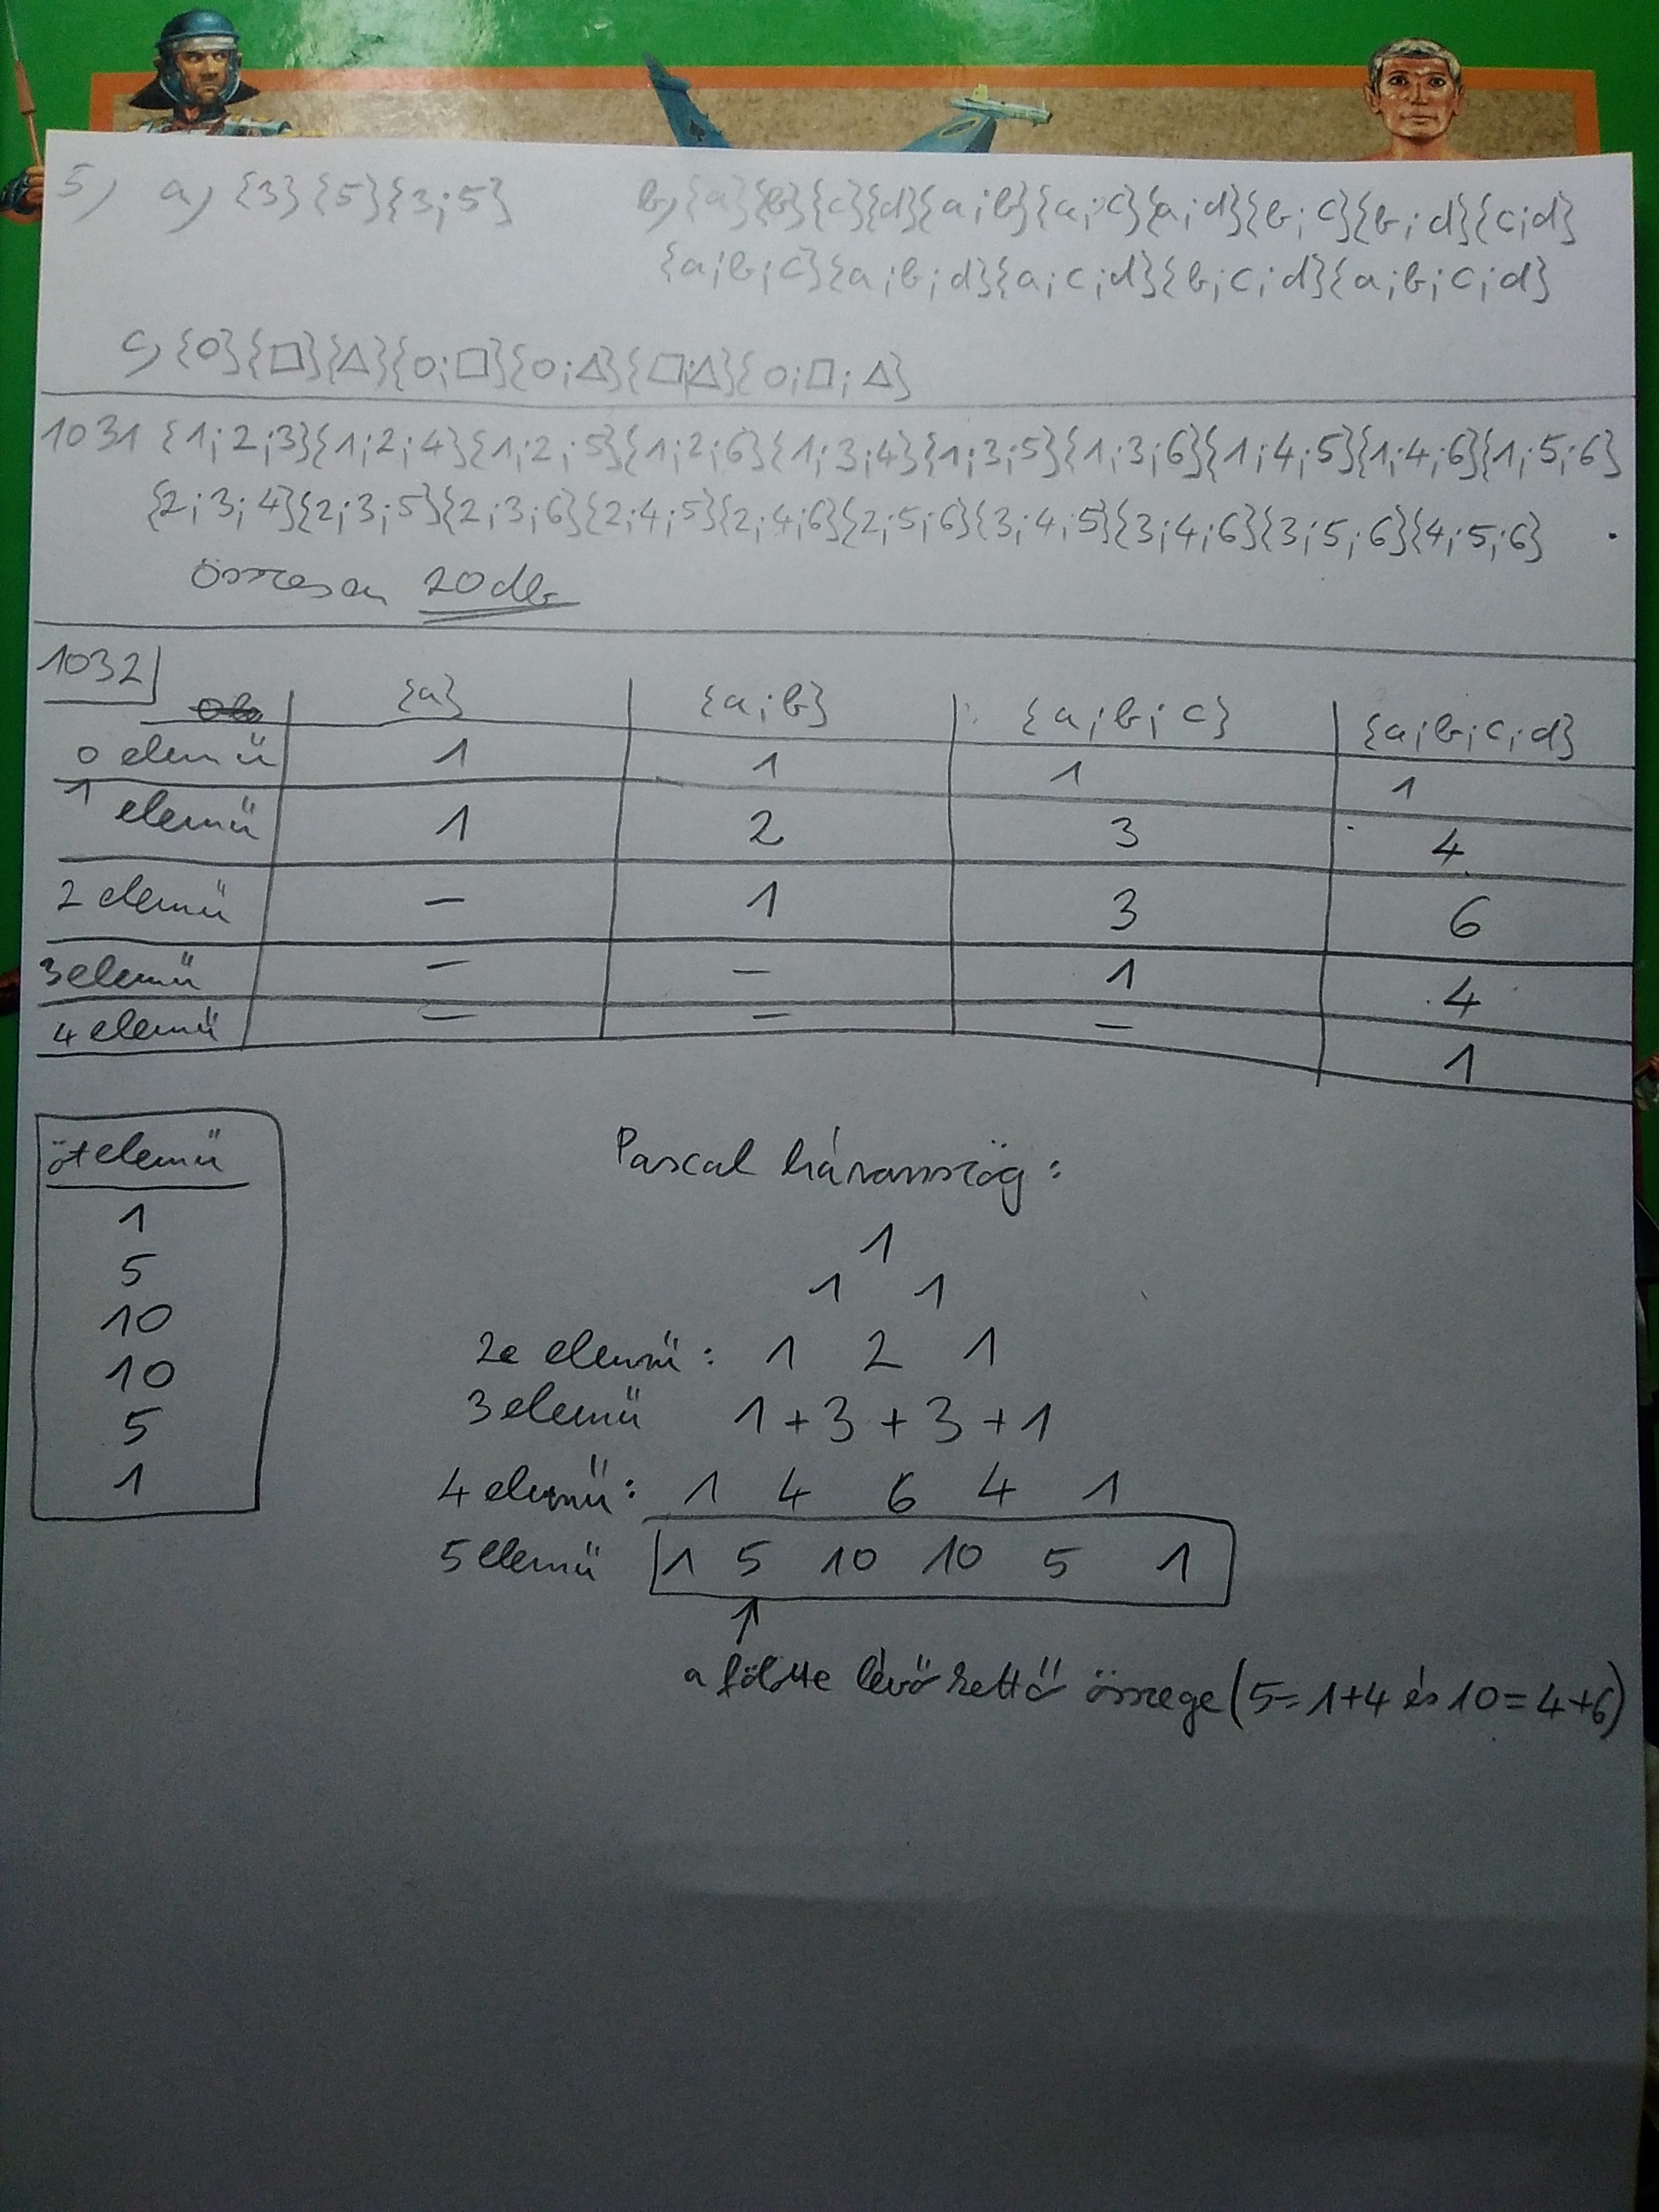 5) a) {3}{5}{3;5} b) {a}{b}{c}{d}{a;b}{a;c}{a;d}{b;c}{b;d}{c;d}
{a;b;c}{a;b;d}{a;c;d}{b;c;d}{a;b;c;d}
c) {○}{□}{△}{○;□}{○;△}{□;△}{○;□;△}
1031 {1;2;3}{1;2;4}{1;2;5}{1;2;6}{1;3;4}{1;3;5}{1;3;6}{1;4;5}{1;4;6}{1;5;6}
{2;3;4}{2;3;5}{2;3;6}{2;4;5}{2;4;6}{2;5;6}{3;4;5}{3;4;6}{3;5;6}{4;5;6}
összesen 20db
1032
{a} {a;b} {a;b;c} {a;b;c;d}
0 elemű 1 1 1 1
1 elemű 1 2 3 4
2 elemű – 1 3 6
3 elemű – – 1 4
4 elemű – – – 1
öt elemű
1
5
10
10
5
1
Pascal háromszög:
1
1 1
2e elemű: 1 2 1
3 elemű 1 + 3 + 3 + 1
4 elemű: 1 4 6 4 1
5 elemű 1 5 10 10 5 1
↑
a fölötte lévő kettő összege (5=1+4 és 10=4+6)